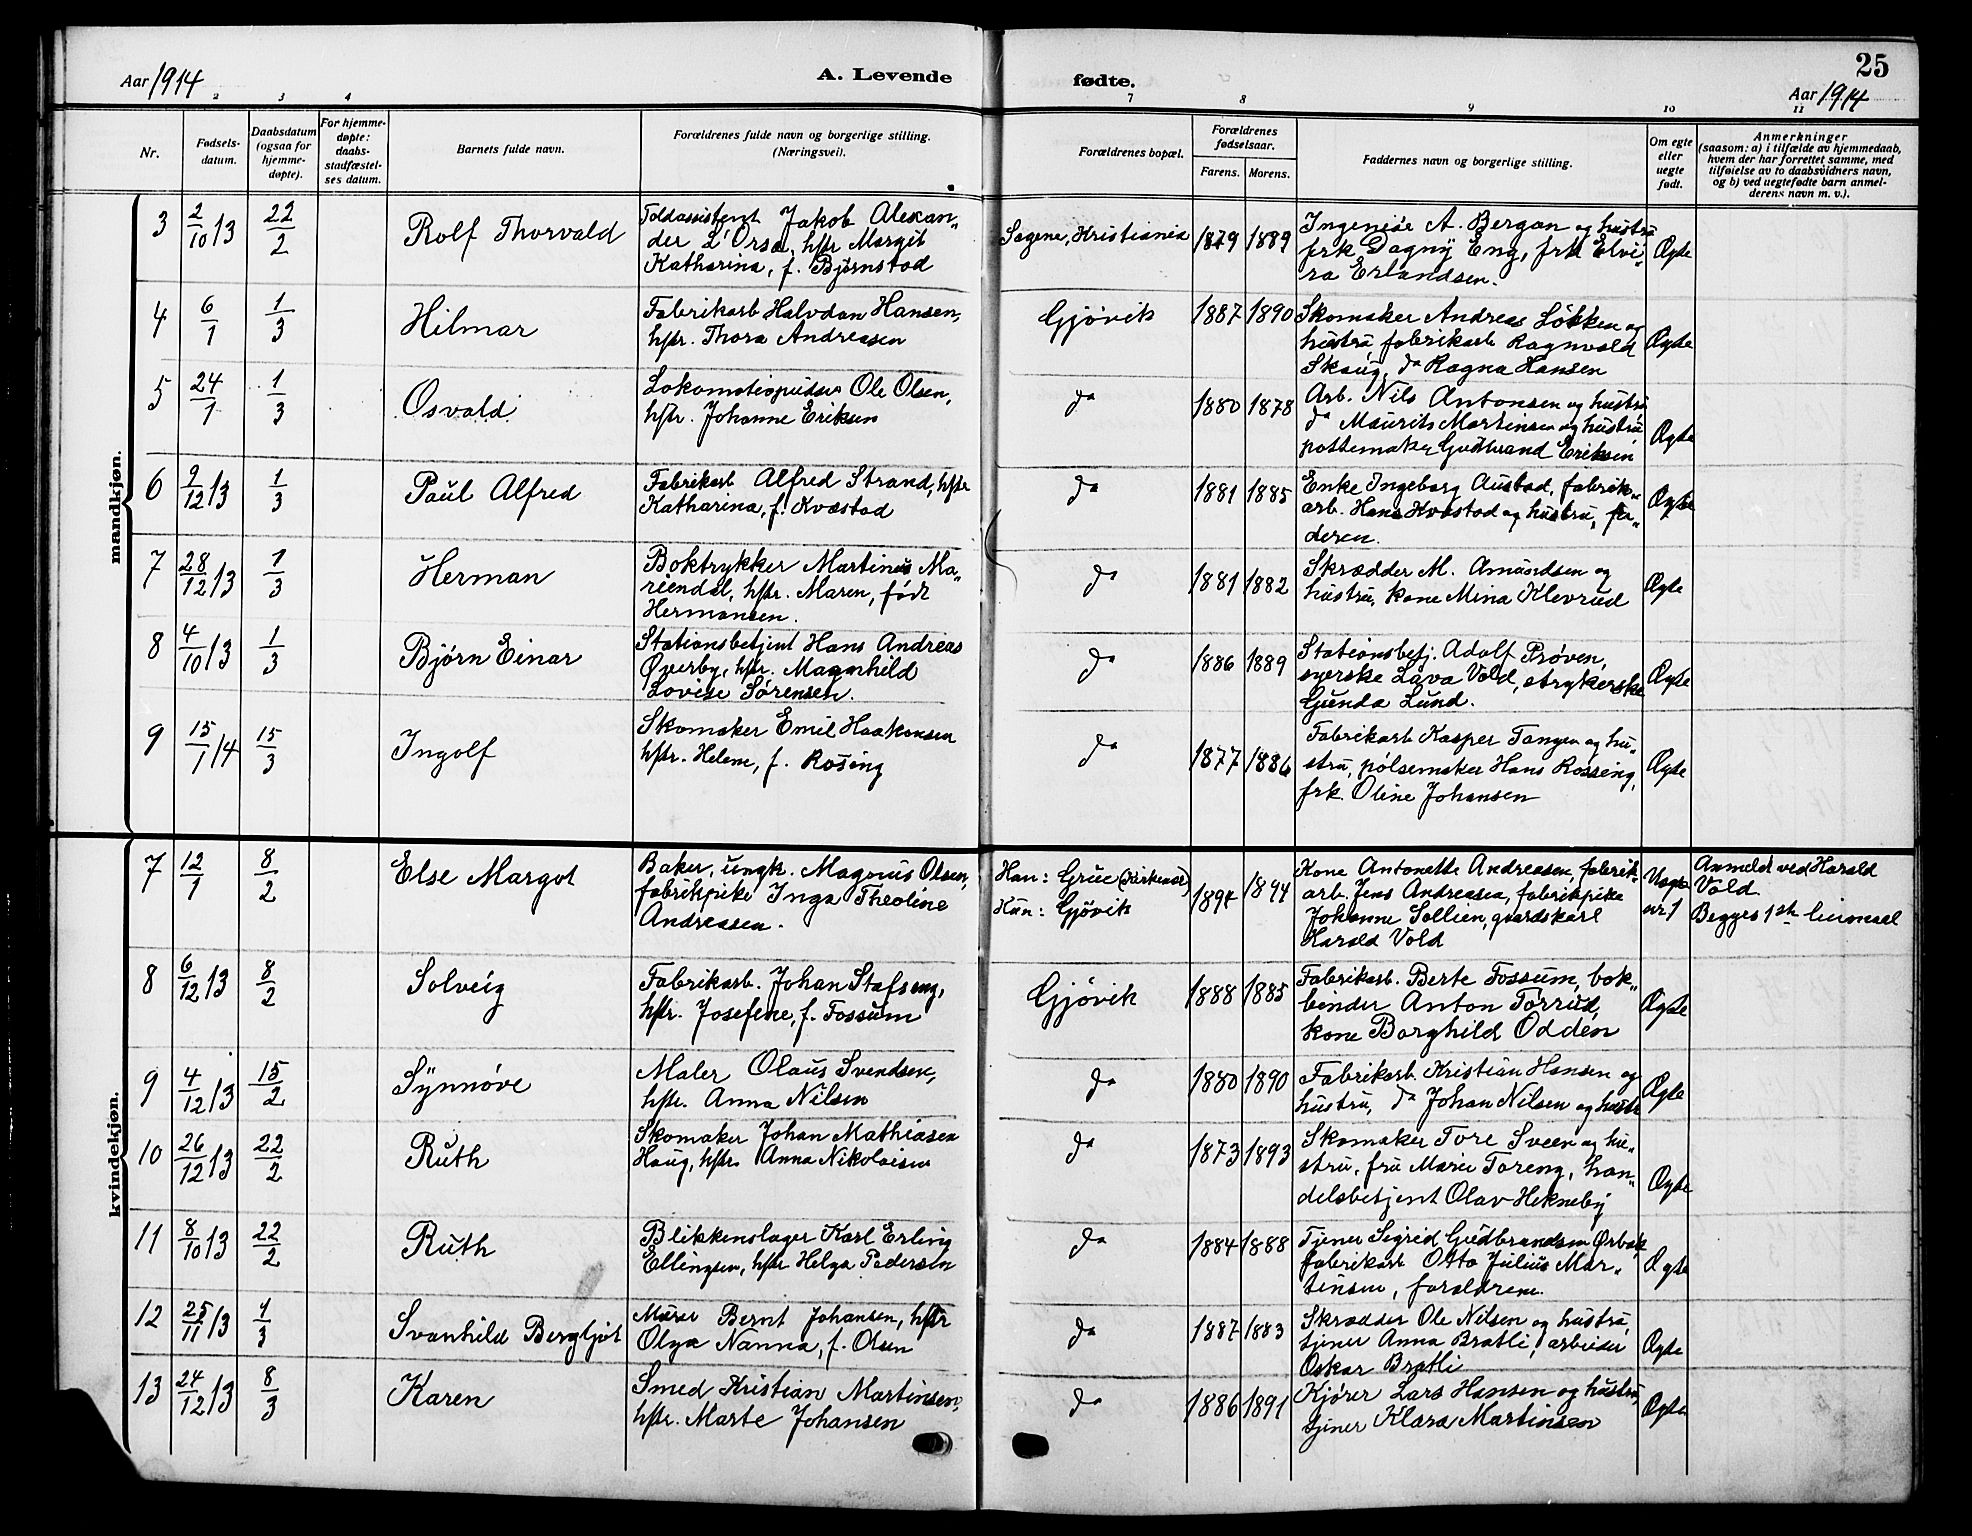 Aar 1914
A. Levende
fødte.
25
Aar 1914
2 3 4 7 8 9 10 11
Nr.
Fødsels-
datum.
Daabsdatum
(ogsaa for
hjemme-
døpte).
For hjemme-
døpte:
daabs-
stadfæstel-
ses datum.
Barnets fulde navn.
Forældrenes fulde navn og borgerlige stilling.
(Næringsvei).
Forældrenes bopæl.
Forældrenes
fødselsaar.
Farens. Morens.
Faddernes navn og borgerlige stilling.
Om egte
eller
uegte
født.
Anmerkninger
(saasom: a) i tilfælde av hjemmedaab,
hvem der har forrettet samme, med
tilføielse av to daabsvidners navn,
og b) ved uegtefødte barn anmel-
derens navn m. v.).
mandkjøn.
3 2/10 13 22/2 Rolf Thorvald
Toldassistent Jakob Alexan-
der L'Orsa, hstr Margit
Katharina, f. Bjørnstad
Sagene, Kristiania 1879 1889
Ingeniør A. Bergan og hustru
frk Dagny Eng, frk Elvi-
ra Erlandsen.
Ægte
4 6/1 1/3 Hilmar
Fabrikarb Halvdan Hansen,
hstr. Thora Andreasen
Gjøvik 1887 1890
Skomaker Andreas Løkken og
hustru, fabrikarb Ragnvald
Skaug, do Ragna Hansen
Ægte
5 24/1 1/3 Osvald
Lokomotivpudser Ole Olsen,
hstr. Johanne Eriksen
do 1880 1878
Arb. Nils Antonsen og hustru
do Maurits Martinsen og hustru
pottemaker Gudbrand Eriksen
Ægte
6 9/12 13 1/3 Paul Alfred
Fabrikarb Alfred Strand, hstr
Katharina, f. Kvæstad
do 1881 1885
Enke Ingeborg Austad, fabrik-
arb. Hans Kvæstad og hustru, fa-
deren.
Ægte
7 28/12 13 1/3 Herman
Boktrykker Martinus Ma-
riendal, hstr. Maren, født
Hermansen.
do 1881 1882
Skrædder M. Amundsen og
hustru, kone Mina Klevrud
Ægte
8 4/10 13 1/3 Bjørn Einar
Stationsbetjent Hans Andreas
Øverby, hstr. Magnhild
Lovise Sørensen.
do 1886 1889
Stationsbetj. Adolf Prøven,
syerske Lava Vold, strykerske
Gunda Lund.
Ægte
9 15/1 14 15/3 Ingolf
Skomaker Emil Haakonsen
hstr. Helene, f. Rosing
do 1877 1886
Fabrikarb Kasper Tangen og hu-
stru, pølsemaker Hans Rossing,
frk. Oline Johansen
Ægte
kvindekjøn.
7 12/1 8/2 Else Margot
Baker, ungk. Magnus Olsen,
fabrikpike Inga Theoline
Andreasen.
Han: Grue (Kirkenær)
Hun: Gjøvik
1894 1894
Kone Antonette Andreasen, fabrik-
arb. Jens Andreasen, fabrikpike
Johanne Sollien, gaardskarl
Harald Vold
Uægte
nr 1
Anmeldt ved Harald
Vold
Begges 1ste leiermaal
8 6/12 13 8/2 Solveig
Fabrikarb. Johan Stafseng,
hstr. Josefine, f. Fossum
Gjøvik 1888 1885
Fabrikarb. Berte Fossum, bok-
binder Anton Torrud,
kone Borghild Odden
Ægte
9 4/12 13 15/2 Synnøve
Maler Olaus Svendsen,
hstr. Anna Nilsen
do 1880 1890
Fabrikarb. Kristian Hansen og
hustru, do Johan Nilsen og hustr
Ægte
10 26/12 13 22/2 Ruth
Skomaker Johan Mathiasen
Haug, hstr. Anna Nikolaisen
do 1873 1893
Skomaker Tore Sveen og hu-
stru, fru Marie Toreng, han-
delsbetjent Olav Hekneby
Ægte
11 8/10 13 22/2 Ruth
Blikkenslager Karl Erling
Ellingsen, hstr Helga Pedersen
do 1884 1888
Tjener Sigrid Gudbrandsen Ørbæk
fabrikarb Otto Julius Mar-
tinsen, forældrene.
Ægte
12 25/11 13 1/3 Svanhild Bergljot
Murer Bernt Johansen, hstr
Olga Nanna, f. Olsen
do 1887 1883
Skrædder Ole Nilsen og hustru,
tjener Anna Bratli, arbeider
Oskar Bratli
Ægte
13 24/12 13 8/3 Karen
Smed Kristian Martinsen,
hstr. Marte Johansen
do 1886 1891
Kjører Lars Hansen og hustru,
tjener Klara Martinsen
Ægte